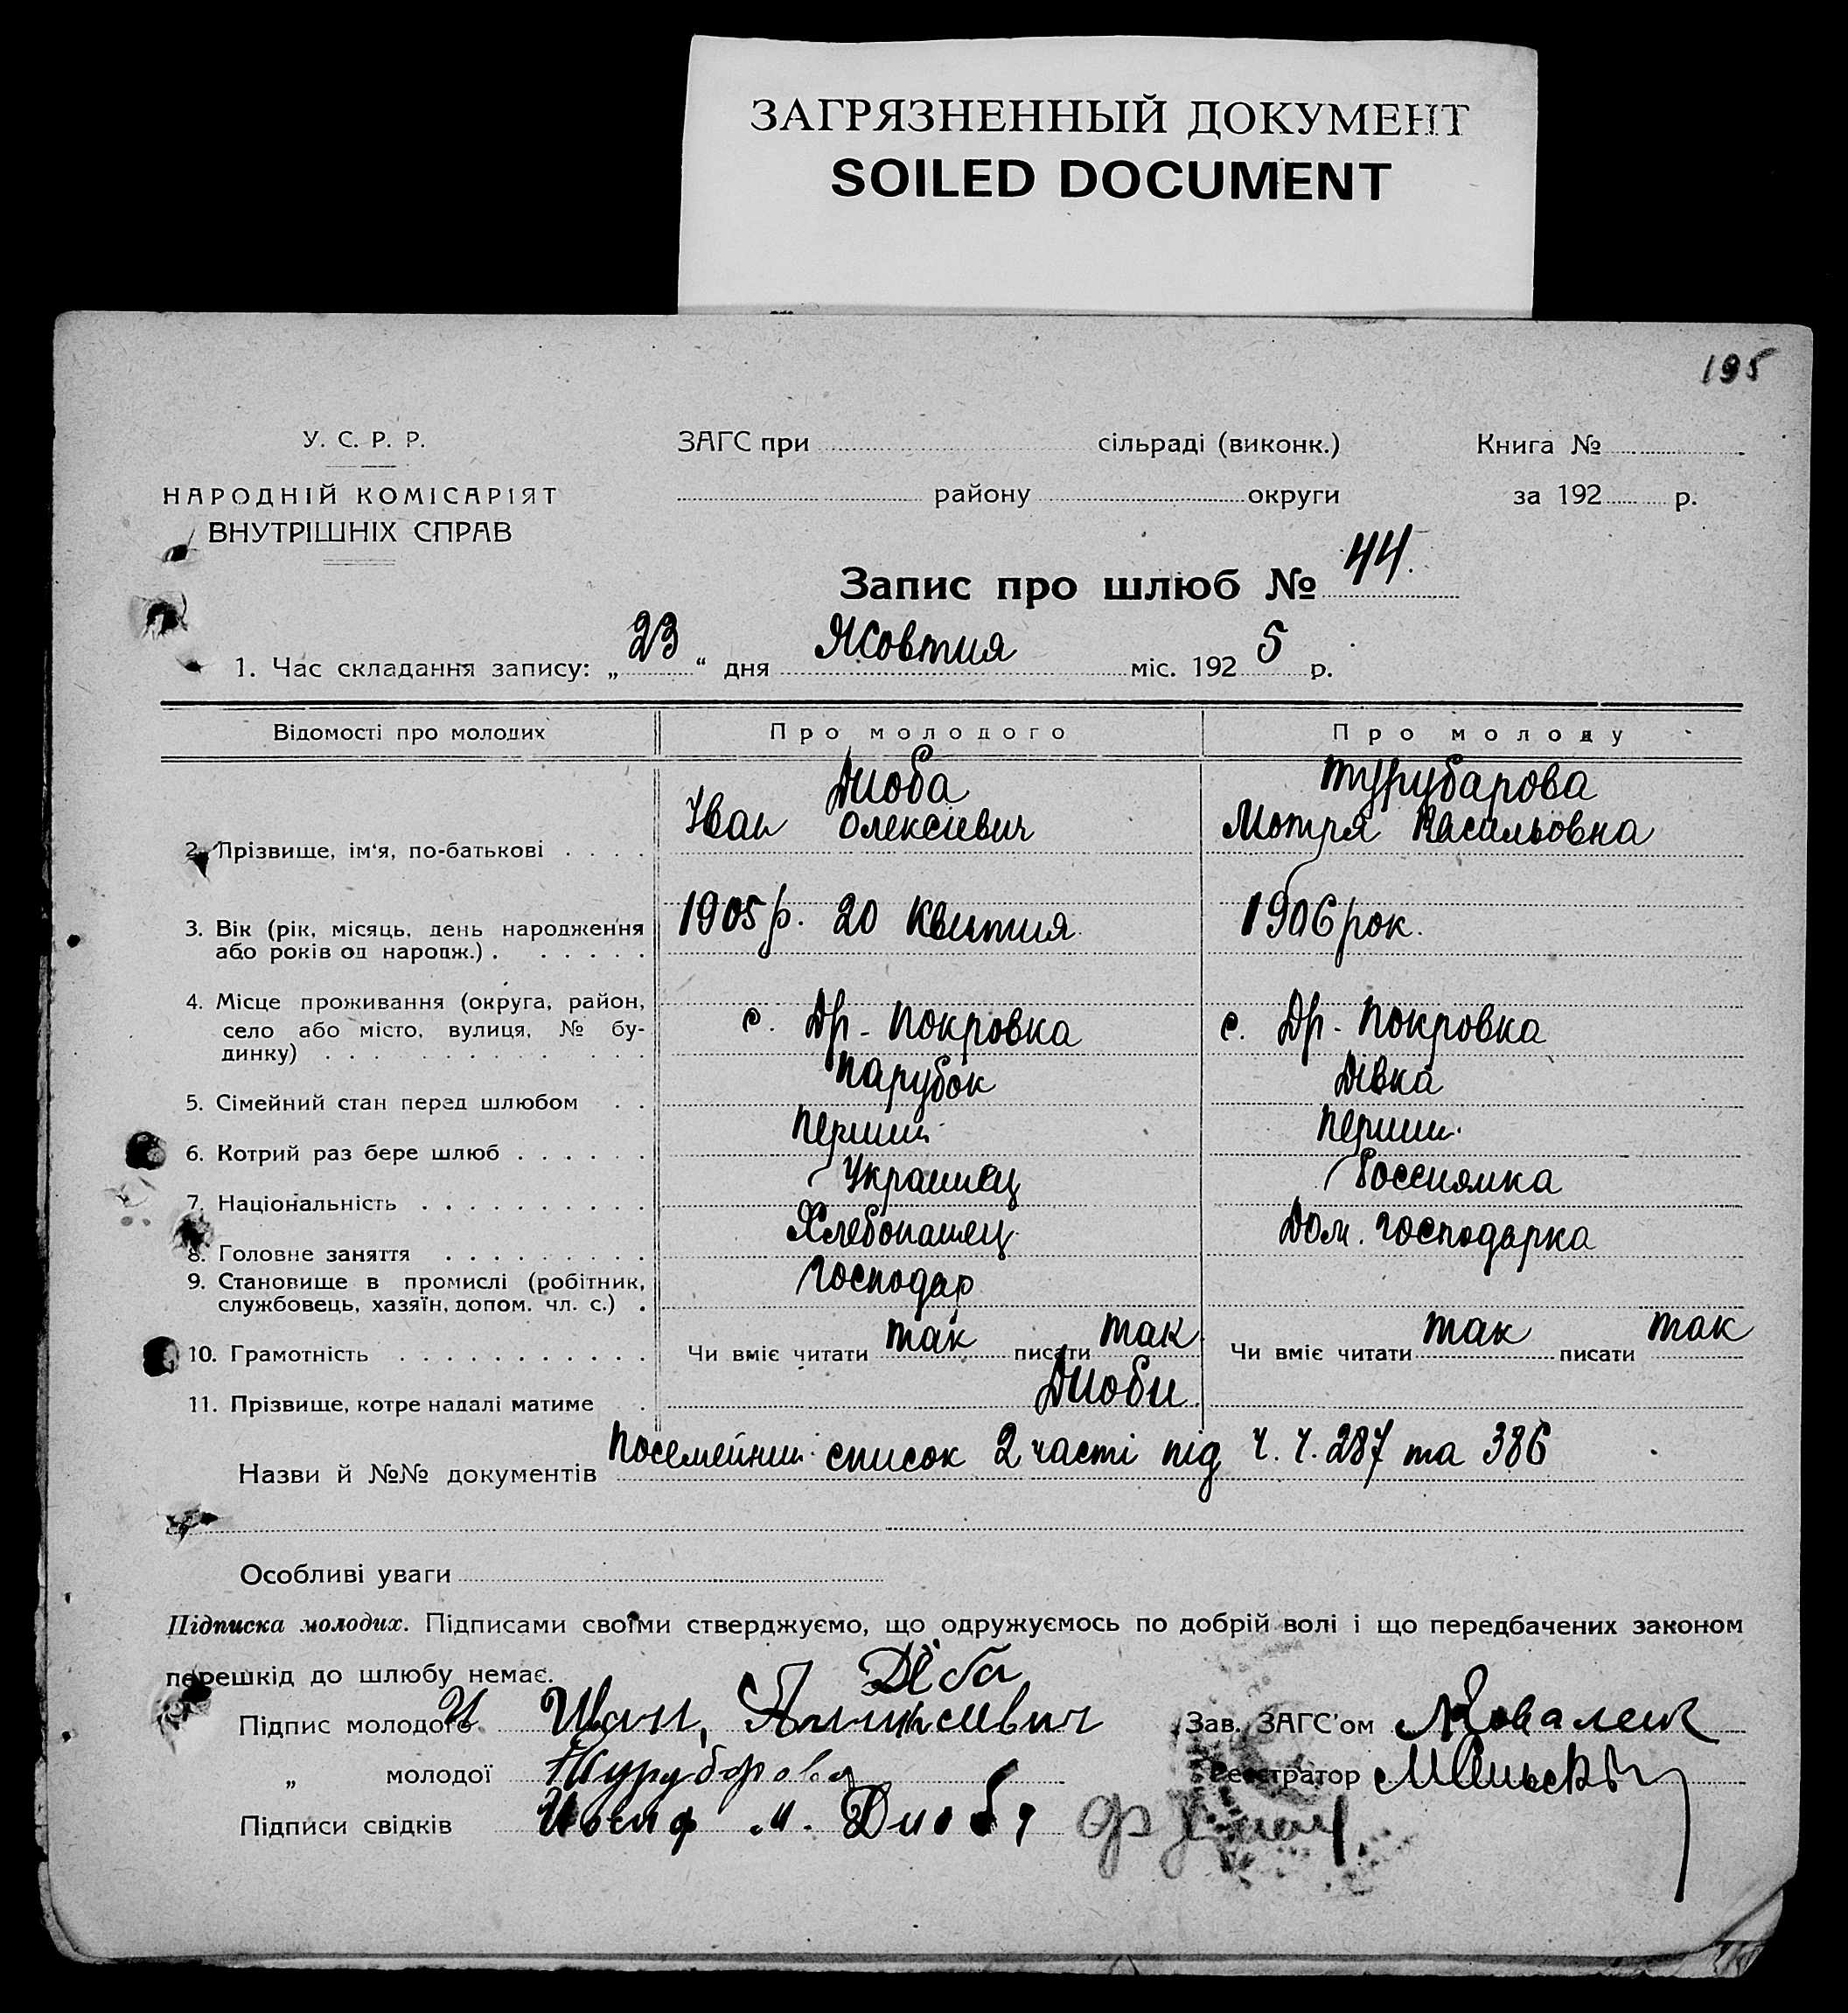 ЗАГРЯЗНЕННЫЙ ДОКУМЕНТ
SOILED DOCUMENT
195
У. С. Р. Р.
НАРОДНІЙ КОМІСАРІЯТ
ВНУТРІШНІХ СПРАВ
ЗАГС при сільраді (виконк.) Книга №
району округи за 192 р.
Запис про шлюб № 44.
1. Час складання запису: „23“ дня Жовтня міс. 1925 р.
Відомості про молодих Про молодого Про молоду
Дюба Турубарова
2. Прізвище, ім'я, по-батькові . . . . Іван Олексієвич Мотря Васильовна
3. Вік (рік, місяць, день народження 1905 р. 20 Квітня 1906 рок.
або років од народж.) . . . . . .
4. Місце проживання (округа, район, с. Др-Покровка с. Др-Покровка
село або місто, вулиця, № бу-
динку) . . . . . . . . . . . . .
5. Сімейний стан перед шлюбом . . Парубок Дівка
6. Котрий раз бере шлюб . . . . . . Перший Перший
7. Національність . . . . . . . . . . Українец Россиянка
8. Головне заняття . . . . . . . . . Хлебопашец Дом. господарка
9. Становище в промислі (робітник, Господар
службовець, хазяїн, допом. чл. с.) .
10. Грамотність . . . . . . . . . . . Чи вміє читати так писати так Чи вміє читати так писати так
11. Прізвище, котре надалі матиме . Дюби
Назви й №№ документів Посемейний список 2 часті під ч. ч. 287 та 386
Особливі уваги
Підписка молодих. Підписами своїми стверджуємо, що одружуємось по добрій волі і що передбачених законом
перешкід до шлюбу немає.
Підпис молодого Иван Зав. ЗАГС'ом
„ молодої Турубарова Реєстратор
Підписи свідків